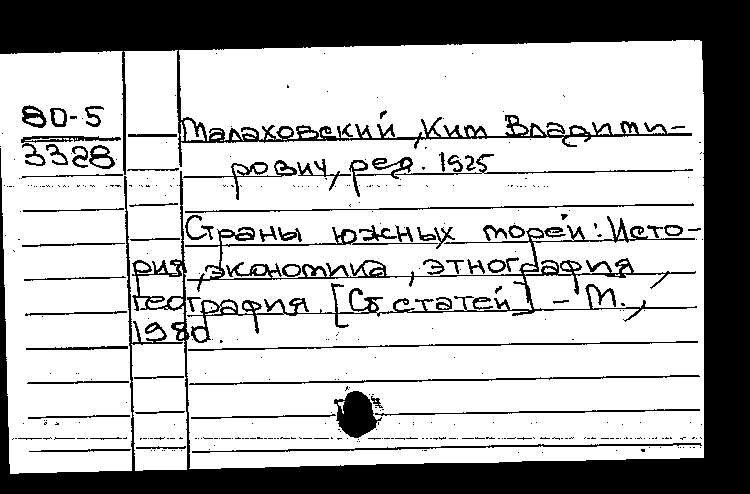 80-5
3328
Малаховский, Ким Владими-
рович, ред. 1925
Страны южных морей: Исто-
рия, экономика, этнография,
география. [Сб. статей] - М.,
1980.